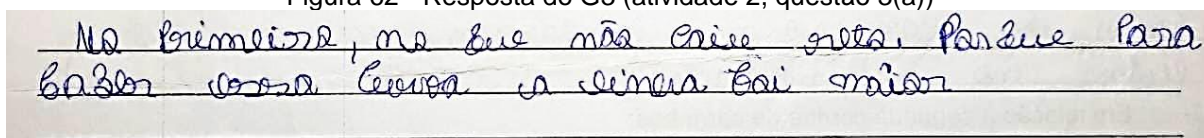 Figura 62 - Resposta do G3 (atividade 2, questão 3(a))
Na Primeira, na que não reta. Porque Para
essa curva a linha maior